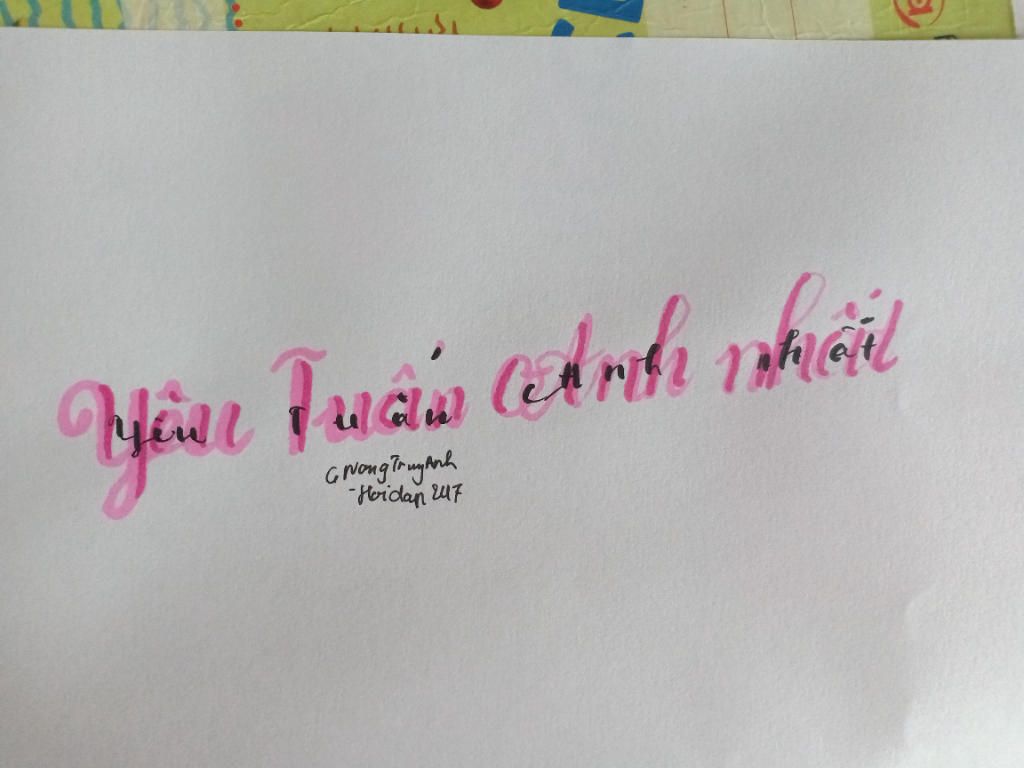 Yêu Tuấn Anh nhất
NongTruyAnh
-Hoidap247